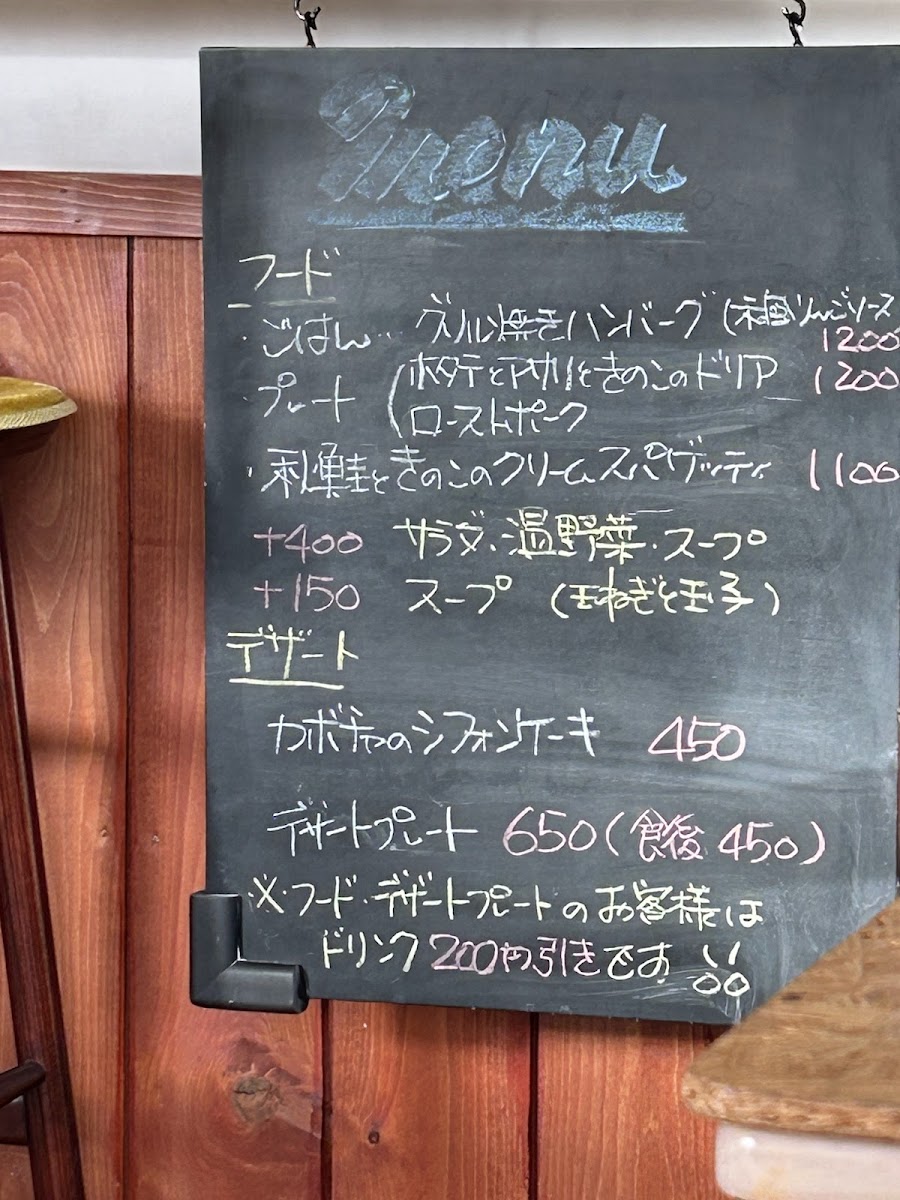 menu
フード
・ごはん… グリル焼きハンバーグ (和風りんごソース
1200
・プレート (ホタテとアサリときのこのドリア 1200
ローストポーク
・秋鮭ときのこのクリームスパゲッティ 1100
+400 サラダ・温野菜・スープ
+150 スープ (玉ねぎと玉子)
デザート
カボチャのシフォンケーキ 450
デザートプレート 650(食後 450)
※・フード・デザートプレートのお客様は
ドリンク200円引きです!!